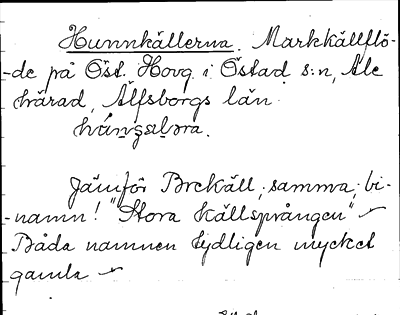 Hunnkällerna. Markkällflö-
-de på Öst. Hovg. i Östad s:n, Ale
härad, Älfsborgs län.
Jämför Brekäll, samma, bi-
-namn! "Stora källsprången"
Båda namnen tydligen mycket
gamla